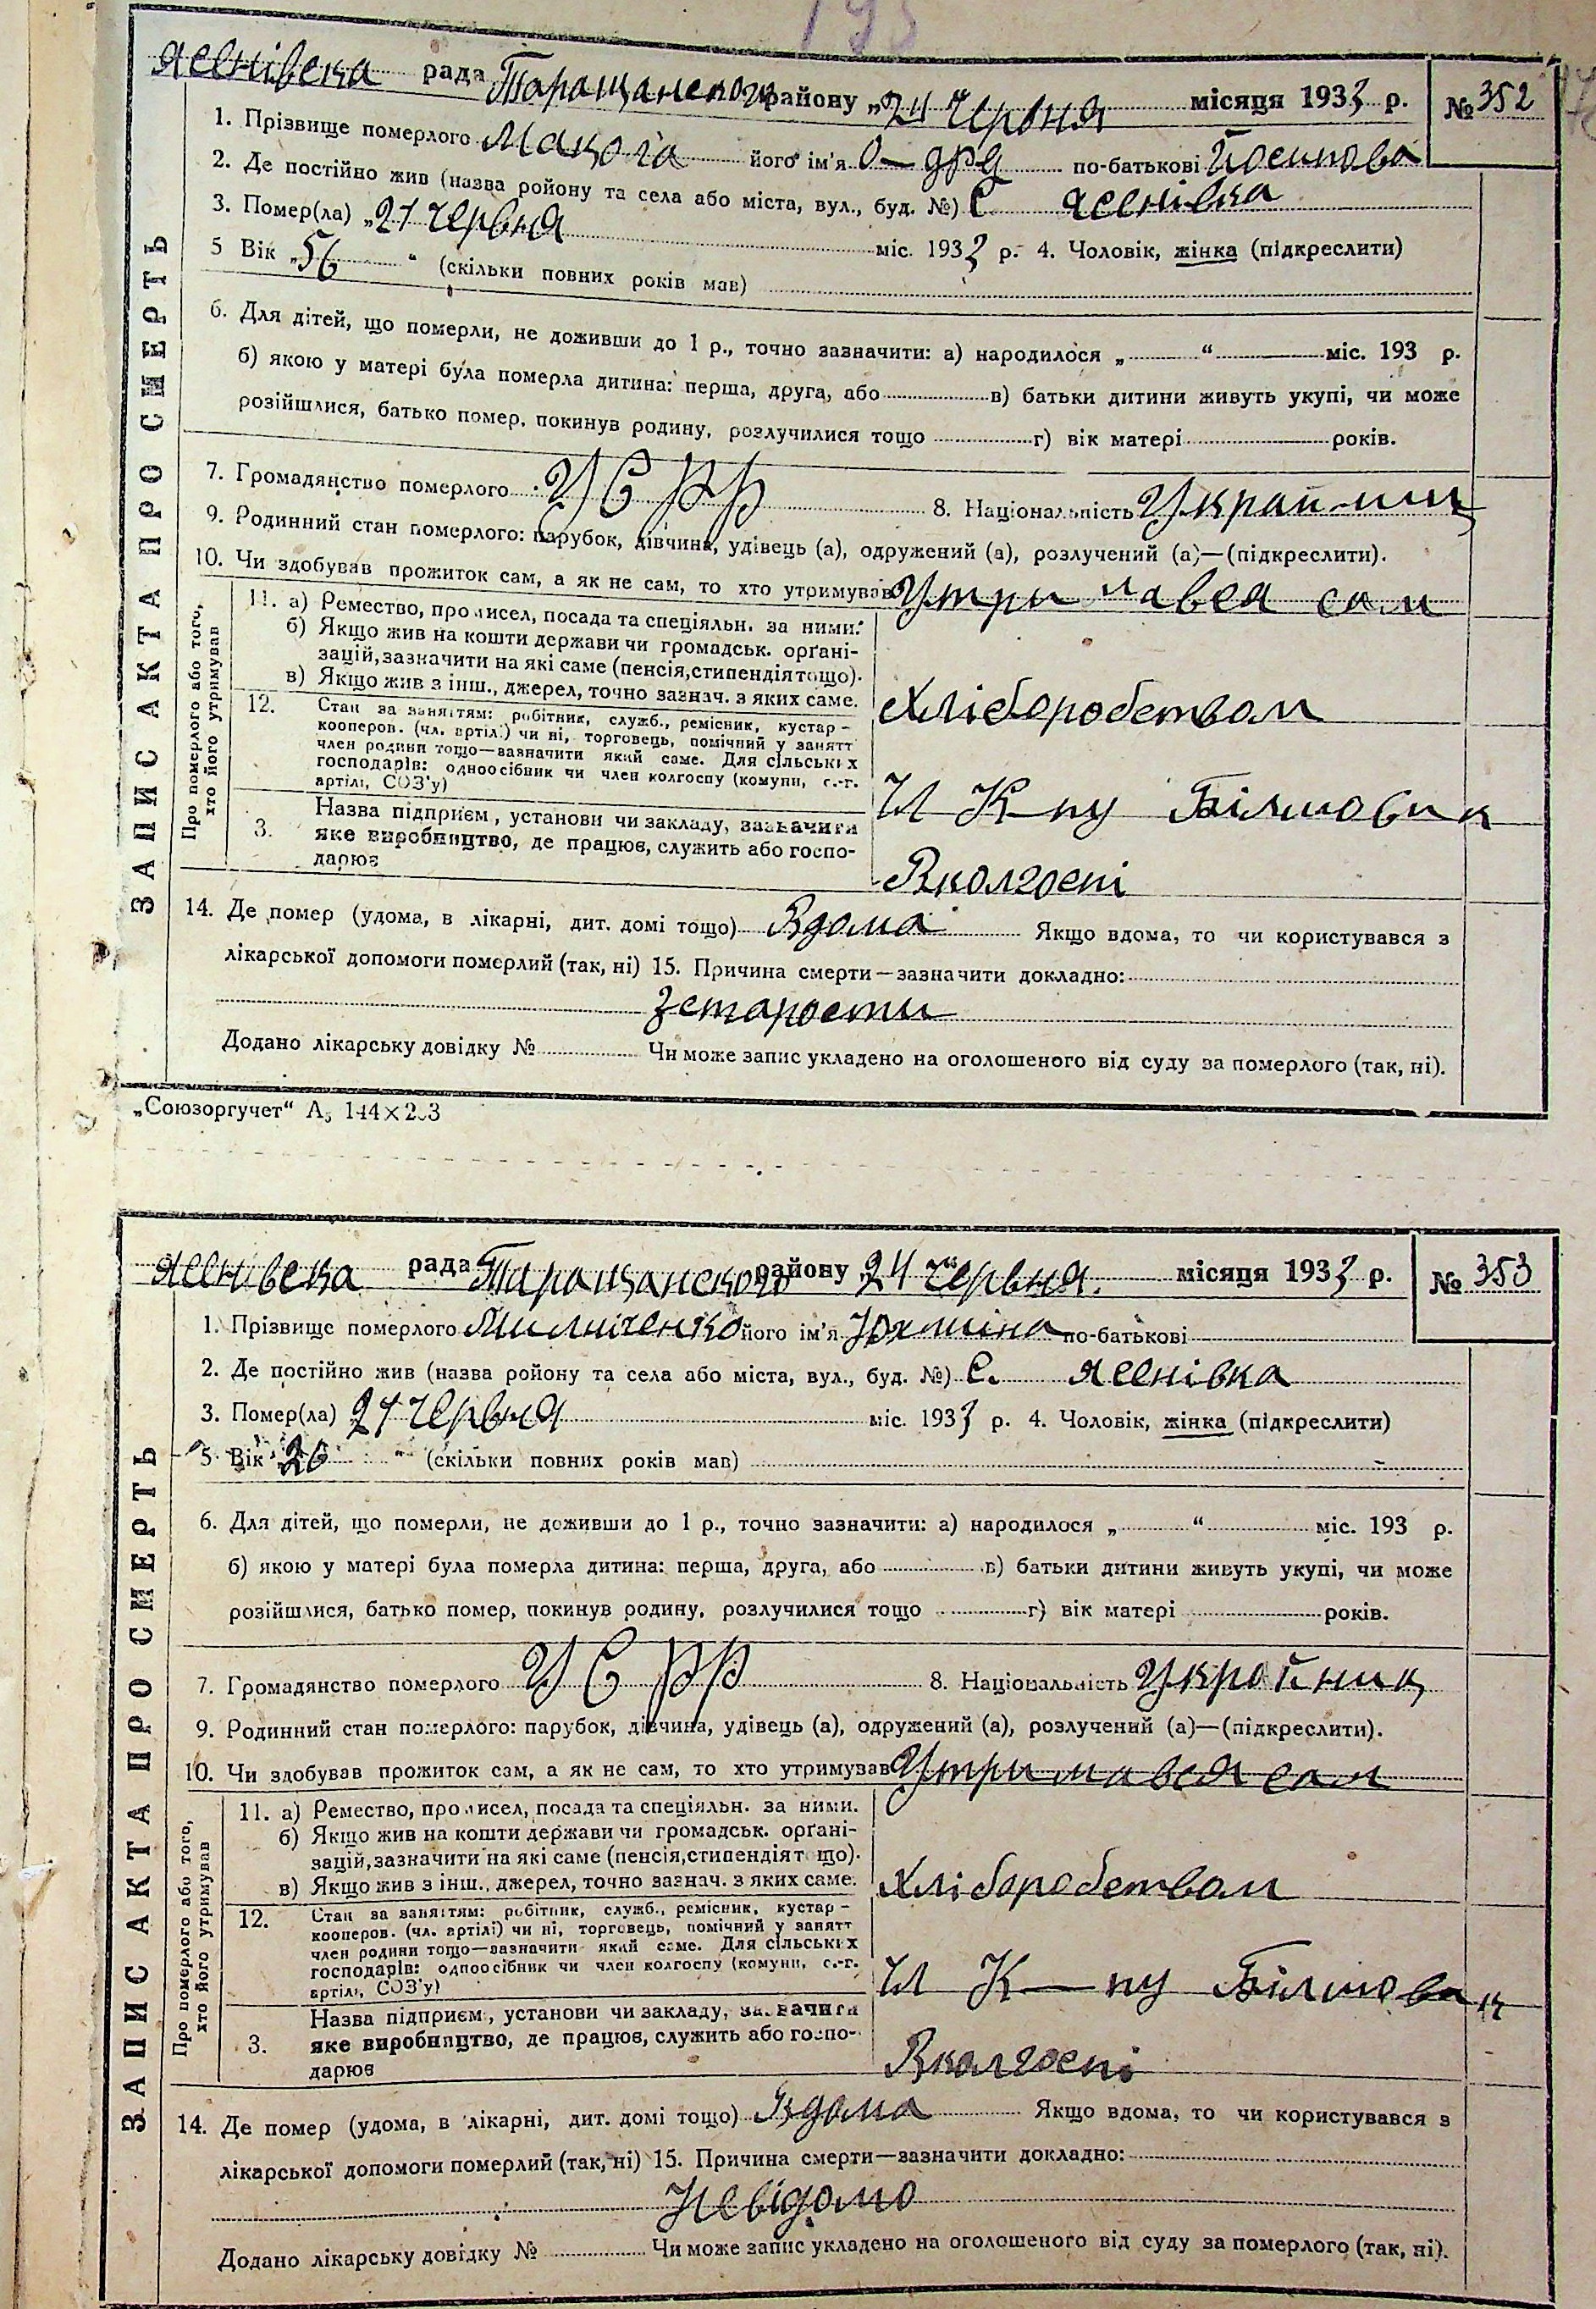 193
Ясенівска рада Таращанского району „24“ Червня місяця 1933 р. № 352
1. Прізвище померлого Мацюга його ім'я О-дря по-батькові Йосипова
2. Де постійно жив (назва ройону та села або міста, вул., буд. №) С. Ясенівка
3. Помер(ла) „21 Червня міс. 1933 р. 4. Чоловік, жінка (підкреслити)
5 Вік „56“ (скільки повних років мав)
6. Для дітей, що померли, не доживши до 1 р., точно зазначити: а) народилося „ “ міс. 193 р.
б) якою у матері була померла дитина: перша, друга, або в) батьки дитини живуть укупі, чи може
розійшлися, батько помер, покинув родину, розлучилися тощо г) вік матері років.
7. Громадянство померлого УСРР 8. Національність Україниц
9. Родинний стан померлого: парубок, дівчина, удівець (а), одружений (а), розлучений (а)—(підкреслити).
10. Чи здобував прожиток сам, а як не сам, то хто утримував Утримався сам
ЗАПИС АКТА ПРО СМЕРТЬ
Про померлого або того,
хто його утримував
11. а) Ремество, промисел, посада та спеціяльн. за ними.
б) Якщо жив на кошти держави чи громадськ. орґані-
зацій, зазначити на які саме (пенсія, стипендія тощо).
в) Якщо жив з інш., джерел, точно зазнач. з яких саме.
Хліборобством
12. Стан за заняттям: робітник, служб., ремісник, кустар-
кооперов. (чл. артілі) чи ні, торговець, помічний у занятт
член родини тощо—зазначити який саме. Для сільських
господарів: одноосібник чи член колгоспу (комуни, с.-г.
артілі, СОЗ'у)
Чл К-пу Білшовик
3. Назва підприєм, установи чи закладу, зазначити
яке виробництво, де працює, служить або госпо-
дарює
Вколгоспі
14. Де помер (удома, в лікарні, дит. домі тощо) Вдома Якщо вдома, то чи користувався з
лікарської допомоги померлий (так, ні) 15. Причина смерти—зазначити докладно:
Зстарости
Додано лікарську довідку № Чи може запис укладено на оголошеного від суду за померлого (так, ні).
„Союзоргучет“ А5 144×203
Ясенівска рада Таращанского району „24“ Червня. місяця 1933 р. № 353
1. Прізвище померлого Милніченко його ім'я Юхтина по-батькові
2. Де постійно жив (назва ройону та села або міста, вул., буд. №) С. Ясенівка
3. Помер(ла) 21 Червня міс. 1933 р. 4. Чоловік, жінка (підкреслити)
5. Вік 26 “ (скільки повних років мав)
6. Для дітей, що померли, не доживши до 1 р., точно зазначити: а) народилося „ “ міс. 193 р.
б) якою у матері була померла дитина: перша, друга, або в) батьки дитини живуть укупі, чи може
розійшлися, батько помер, покинув родину, розлучилися тощо г) вік матері років.
7. Громадянство померлого УСРР 8. Національність Україниц
9. Родинний стан померлого: парубок, дівчина, удівець (а), одружений (а), розлучений (а)—(підкреслити).
10. Чи здобував прожиток сам, а як не сам, то хто утримував Утримався сам
ЗАПИС АКТА ПРО СМЕРТЬ
Про померлого або того,
хто його утримував
11. а) Ремество, промисел, посада та спеціяльн. за ними.
б) Якщо жив на кошти держави чи громадськ. орґані-
зацій, зазначити на які саме (пенсія, стипендія тощо).
в) Якщо жив з інш., джерел, точно зазнач. з яких саме.
Хліборобством
12. Стан за заняттям: робітник, служб., ремісник, кустар-
кооперов. (чл. артілі) чи ні, торговець, помічний у занятт
член родини тощо—зазначити який саме. Для сільських
господарів: одноосібник чи член колгоспу (комуни, с.-г.
артілі, СОЗ'у)
Чл К-пу Білшовик
3. Назва підприєм, установи чи закладу, зазначити
яке виробництво, де працює, служить або госпо-
дарює
Вколгоспі
14. Де помер (удома, в лікарні, дит. домі тощо) Вдома Якщо вдома, то чи користувався з
лікарської допомоги померлий (так, ні) 15. Причина смерти—зазначити докладно:
Невідомо
Додано лікарську довідку № Чи може запис укладено на оголошеного від суду за померлого (так, ні).